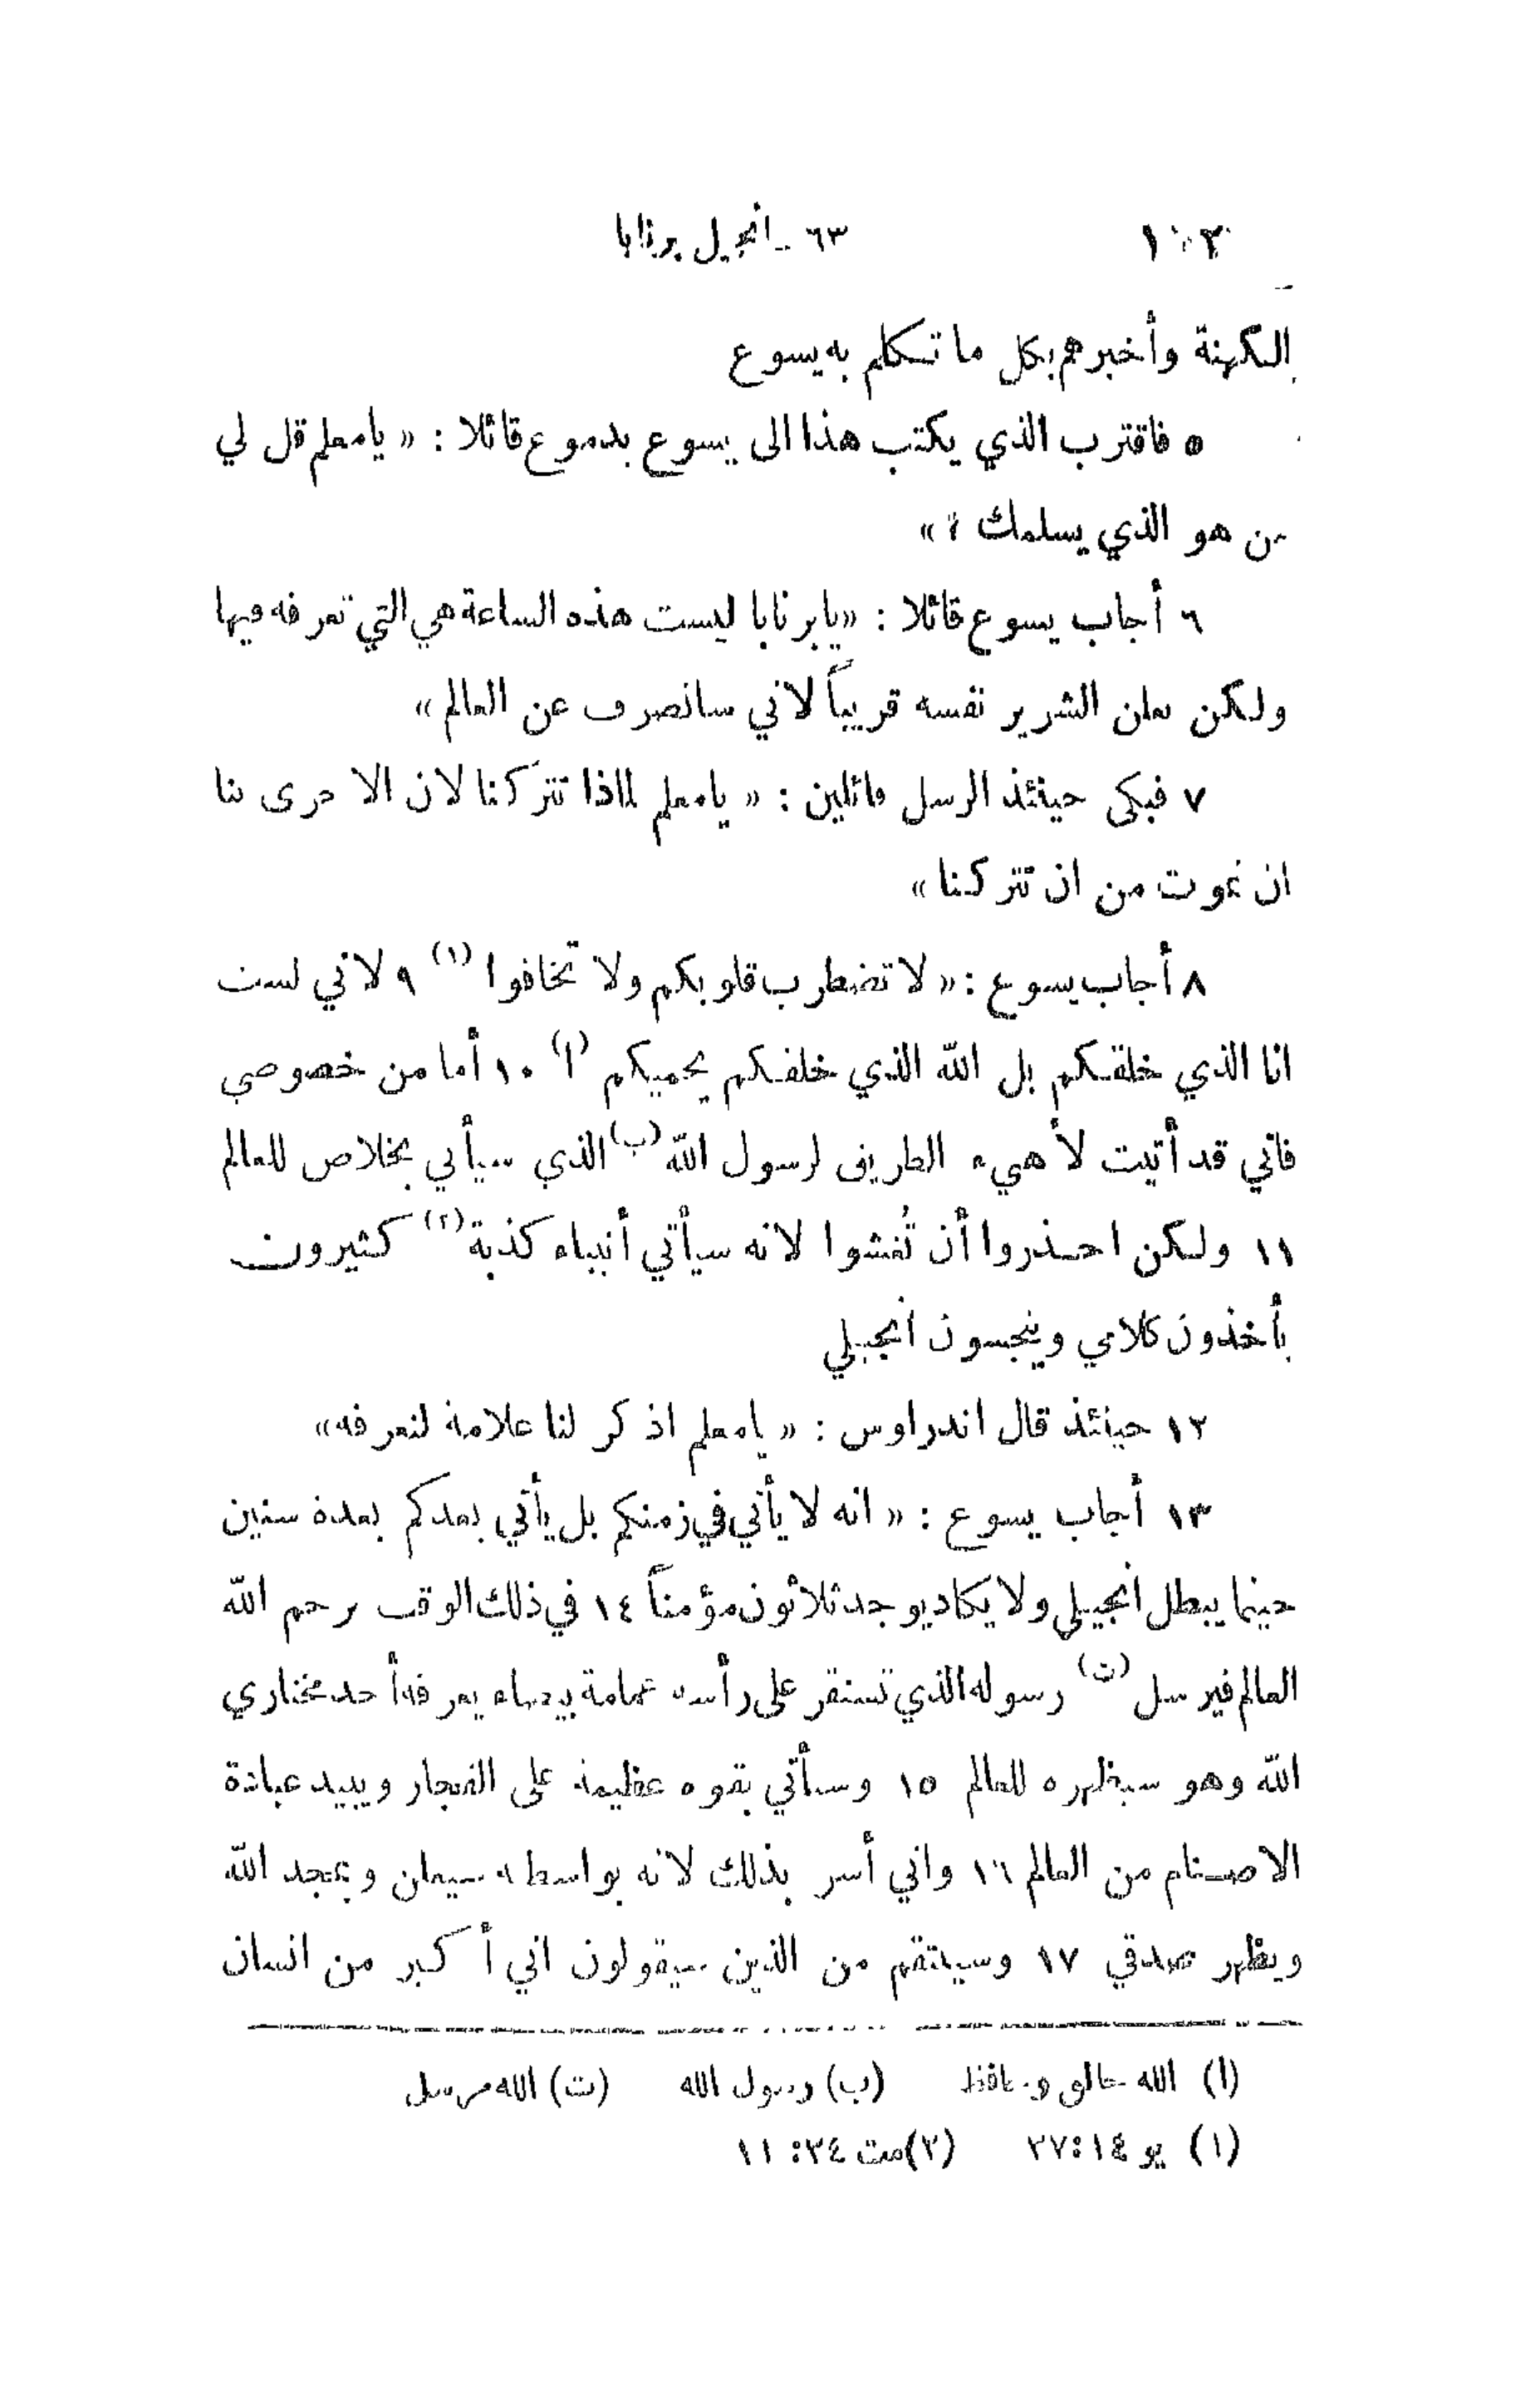 ١٠٢ ٦٣ - انجيل برنابا
الكهنة وأخبرهم بكل ما تكلم به يسوع
٥ فاقترب الذي يكتب هذا الى يسوع بدموع قائلا : « يا معلم قل لي
من هو الذي يسلمك ؟ »
٦ أجاب يسوع قائلا : « يا برنابا ليست هذه الساعة هي التي تعرفه فيها
ولكن يعلن الشرير نفسه قريباً لاني سانصرف عن العالم »
٧ فبكى حينئذ الرسل قائلين : « يا معلم لماذا تتركنا لان الاحرى بنا
ان نموت من ان تتركنا »
٨ أجاب يسوع : « لا تضطرب قلوبكم ولا تخافوا (١) ٩ لاني لست
انا الذي خلقكم بل الله الذي خلقكم يحميكم (ا) ١٠ أما من خصوصي
فاني قد أتيت لأهيء الطريق لرسول الله (ب) الذي سيأتي بخلاص للعالم
١١ ولكن احذروا أن تُغشوا لانه سيأتي أنبياء كذبة (٢) كثيرون
يأخذون كلامي وينجسون انجيلي
١٢ حينئذ قال اندراوس : « يا معلم اذكر لنا علامة لنعرفه »
١٣ أجاب يسوع : « انه لا يأتي في زمنكم بل يأتي بعدكم بعدة سنين
حينما يبطل انجيلي ولا يكاد يوجد ثلاثون مؤمناً ١٤ في ذلك الوقت يرحم الله
العالم فيرسل (ت) رسوله الذي تستقر على رأسه غمامة بيضاء يعرفه أحد مختاري
الله وهو سيظهره للعالم ١٥ وسيأتي بقوة عظيمة على الفجار ويبيد عبادة
الاصنام من العالم ١٦ واني أسر بذلك لانه بواسطته سيعلن ويمجد الله
ويظهر صدقي ١٧ وسينتقم من الذين سيقولون اني أكبر من انسان
(ا) الله خالق وحافظ (ب) رسول الله (ت) الله مرسل
(١) يو ١٤:٢٧ (٢) مت ٢٤: ١١